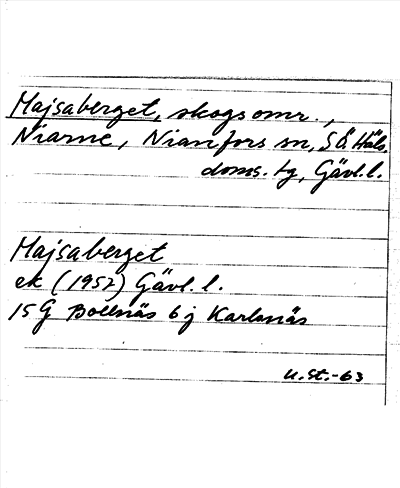 Majsaberget, skogsomr.,
Niarne, Nianfors sn, SÖ Häls.
doms. tg, Gävl. l.
Majsaberget
ek (1952) Gävl. l.
15 G Bollnäs 6 j Karlsnäs
U.St.-63